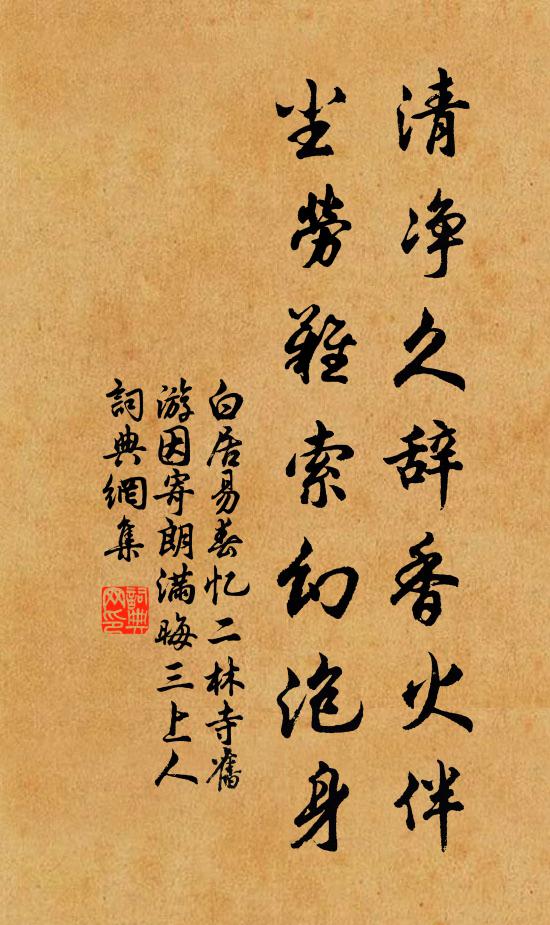 清净久辞香火伴
尘劳難索幻泡身
白居易春忆二林寺舊
游因寄朗滿晦三上人
詞典網集
詞典
网印